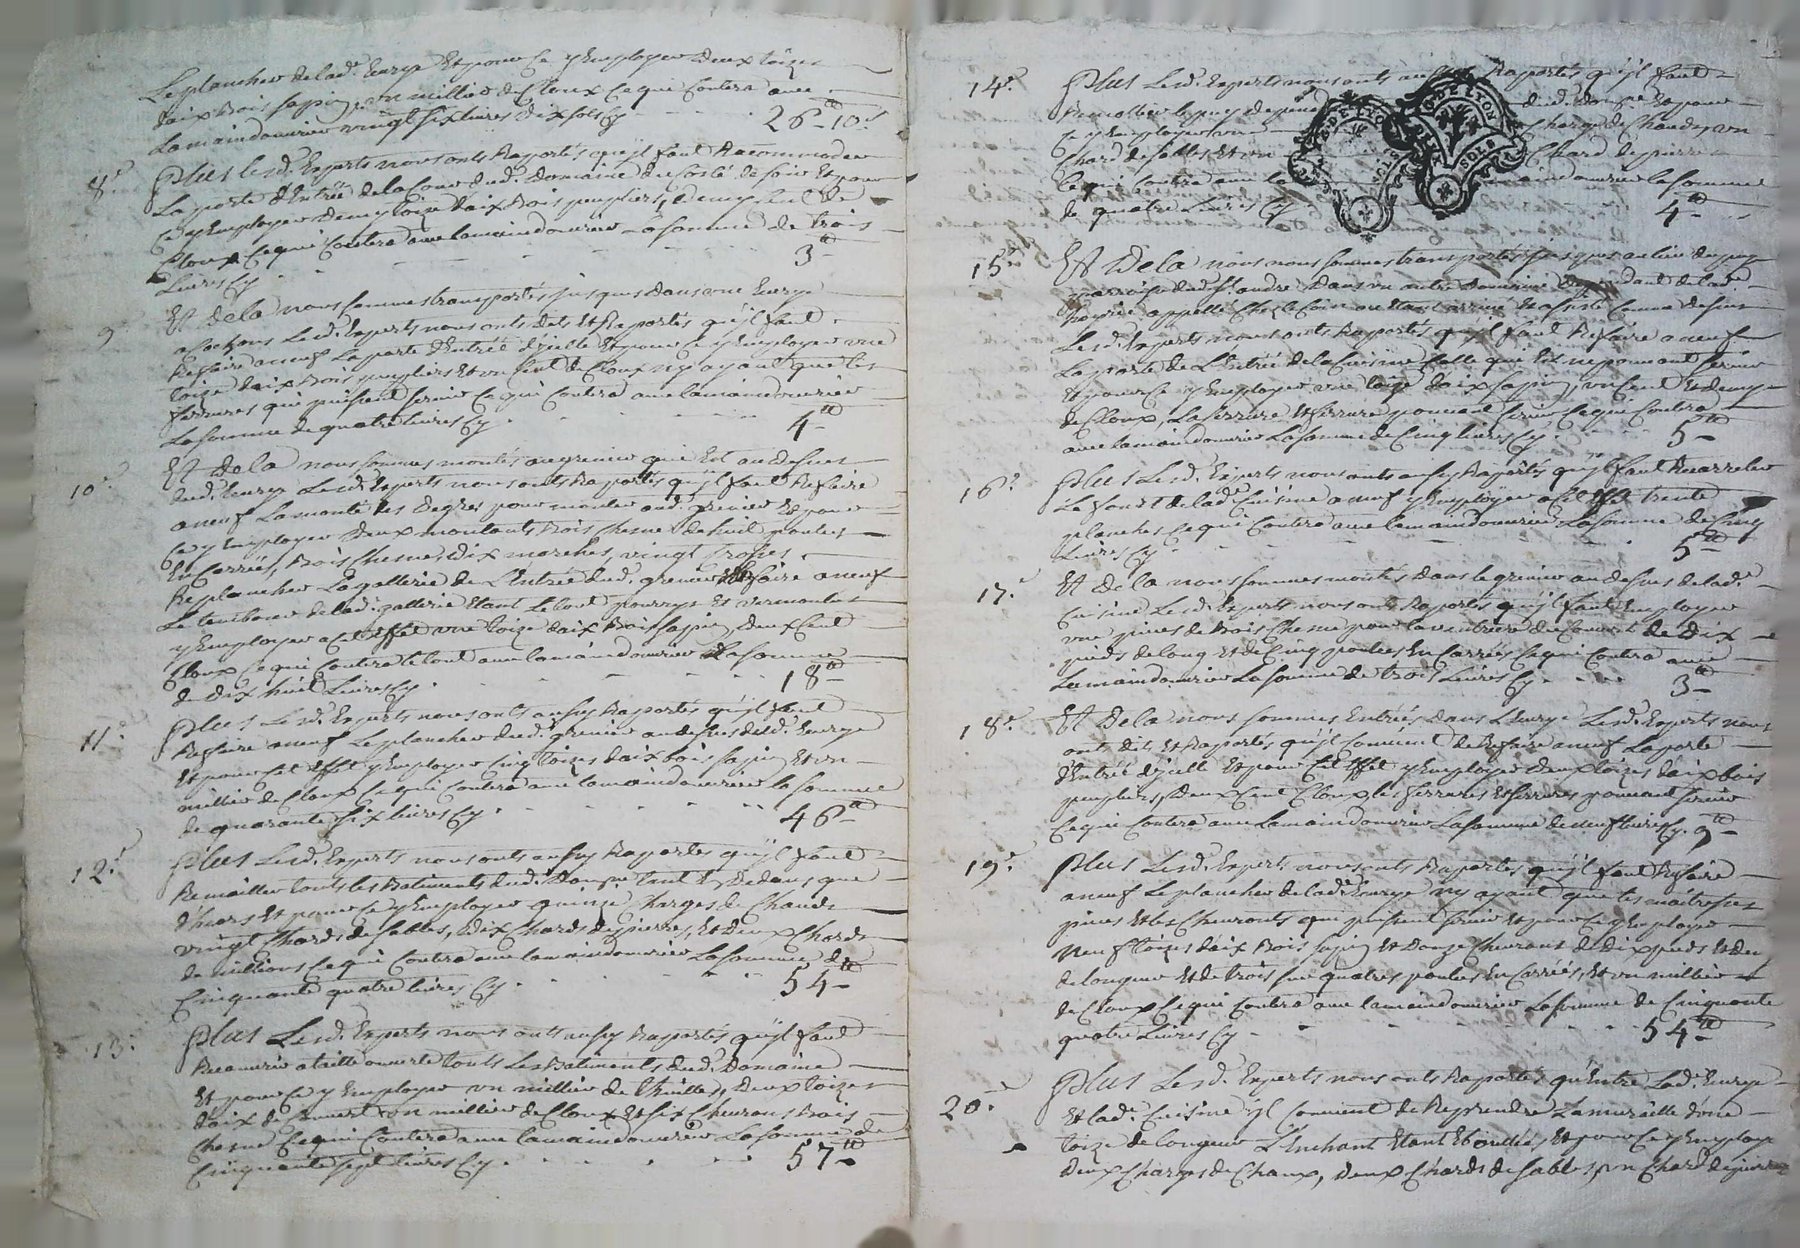 Le plancher de lad.e Eurye Et pour Ce y Employer Deux toizes
daix Bois sapin, un millier de Cloux Ce qui Contera avec
La main douvrier vingt six livres dix sols Cy 26-10.s
8.e Plus Lesd. Experts nous onts Raportés qu'yl faut Racommoder
La porte d'Entrée de la Cour dud. Domaine du Costé de soir Et pour
Ce y Employer Demy toize daix Bois peupliers, Demy Cent de
Cloux Ce qui Contera avec la main douvrier La somme de trois
Livres Cy 3
9. Et de la nous sommes transportés jusques dans une Eurye
a Cochons Lesd. Experts nous onts Dits Et Raportés qu'yl faut
Refaire a neuf La porte d'Entrée d'ycelle Et pour Ce y Employer une
toize daix Bois peupliers Et un Cent de Cloux ny ayant que les
ferrures qui puissent servir Ce qui Contera avec la main douvrier
La somme de quatre livres Cy 4
10.e Et de la nous sommes montés au grenier qui Est au dessus
dud. Eurye Lesd. Experts nous onts Raportés qu'yl faut Refaire
a neuf La monté des degrés pour monter aud. grenier Et pour
Ce y Employer Deux montants Bois Chesne de huit pouces
En Carriés, Bois Chesne, dix marches, vingt
Replancher La gallerie de L'Entrée dud. grenier Refaire a neuf
Le tambour de lad. gallerie Etant Le tout pourrys Et vermoulus
y Employer a Cet Effet une toize daix Bois sapin, Deux Cent
Cloux Ce qui Contera le tout avec la main douvrier La somme
de dix huit Livres Cy 18
11.e Plus Lesd. Experts nous onts aussy Raportés qu'yl faut
Refaire a neuf Le plancher dud. grenier au dessus de lad. Eurye
Et pour Cet Effet y Employer Cinq toizes daix bois sapin Et un
millier de Cloux Ce qui Contera avec la main douvrier la somme
de quarante six livres Cy 46
12.e Plus Lesd. Experts nous onts aussy Raportés qu'yl faut
Remailler touts les Batiments dud. Domaine tant En Dedans que
dhors Et pour Ce y Employer quinze Charges de Chaud
vingt Chards de sables, dix Chards de pierres, Et Deux Chards
de millions Ce qui Contera avec la main douvrier La somme de
Cinquante quatre livres Cy 54
13.e Plus Lesd. Experts nous onts aussy Raportés qu'yl faut
Recouvrir a taille ouverte touts Les Batiments dud. Domaine
Et pour Ce y Employer un millier de thuilles, Deux toizes
daix de Couvert un millier de Cloux Et six Chevrons Bois
Chesne Ce qui Contera avec la main douvrier La somme de
Cinquante sept livres Cy 57
14.e Plus Lesd. Experts nous onts aussy Raportés qu'yl faut
Remailler le puy de pierre dud. Domne Et pour
Ce y Employer une Charge de Chaud, un
Chard de sables Et un Chard de pierres
Ce qui Contera avec la main douvrier la somme
de quatre Livres Cy 4
15.e Et De la nous nous sommes transportés jusques au lieu du puy
parroisse dud. Dans un autre Domaine Dependant de lad.
appellé Chez le Coin ou Etant arrivé Et assisté Comme dessus
Lesd. Experts nous onts Raportés qu'yl faut Refaire a neuf
La porte de L'Entrée de la Cuisine Celle qui Est ne pouvant servir
Et pour Ce y Employer une toize daix sapin, un Cent Et demy
de Cloux, La serrure Et ferrure pouvant servir Ce qui Contera
avec la main douvrier La somme de Cinq livres Cy 5
16.e Plus Lesd. Experts nous onts aussy Raportés qu'yl faut Recarreler
Le font de lad. Cuisine a neuf y Employer a Cet Effet trente
planches Ce qui Contera avec la main douvrier La somme de Cinq
Livres Cy 5
17.e Et De la nous sommes montés dans le grenier au dessus de lad.
Cuisine Lesd. Experts nous onts Raportés qu'yl faut Employer
une pieces de Bois Chesne pour la ventriere du Couvert de Dix
pieds de long Et de Cinq pouces En Carrés Ce qui Contera avec
La main douvrier La somme de trois Livres Cy 3
18.e Et De la nous sommes Entrés dans L'Eurye Lesd. Experts nous
onts dits Et Raportés qu'yl Convient de Refaire a neuf La porte
d'Entrée d'ycelle Et pour Cet Effet y Employer deux toizes daix bois
peupliers, Deux Cent Cloux les serrures Et ferrures pouvant servir
Ce qui Contera avec la main douvrier La somme de neuf livres Cy. 9
19.e Plus Lesd. Experts nous onts Raportés qu'yl faut Refaire
a neuf Le plancher de lad. Eurye ny ayant que les maitresses
pieces Et les Chevronts qui puissent servir Et pour Ce y Employer
Neuf toizes daix Bois sapin Et Douze Chevrons de dix pieds Et demy
de longueur Et de trois sur quatres pouces En Carriés, Et un millier
de Cloux Ce qui Contera avec la main douvrier La somme de Cinquante
quatre Livres Cy 54
20.e Plus Lesd. Experts nous onts Raportés qu'Entre Lad. Eurye
Et lad. Cuisine yl Convient de Reprendre La muraille d'une
toize de longueur L'Enchant Etant Eboullé, Et pour Ce y Employer
Deux Charges de Chaux, Deux Chards de sables, un Chard de pierres
G. DE LYON
G. DE LYON
SOLS